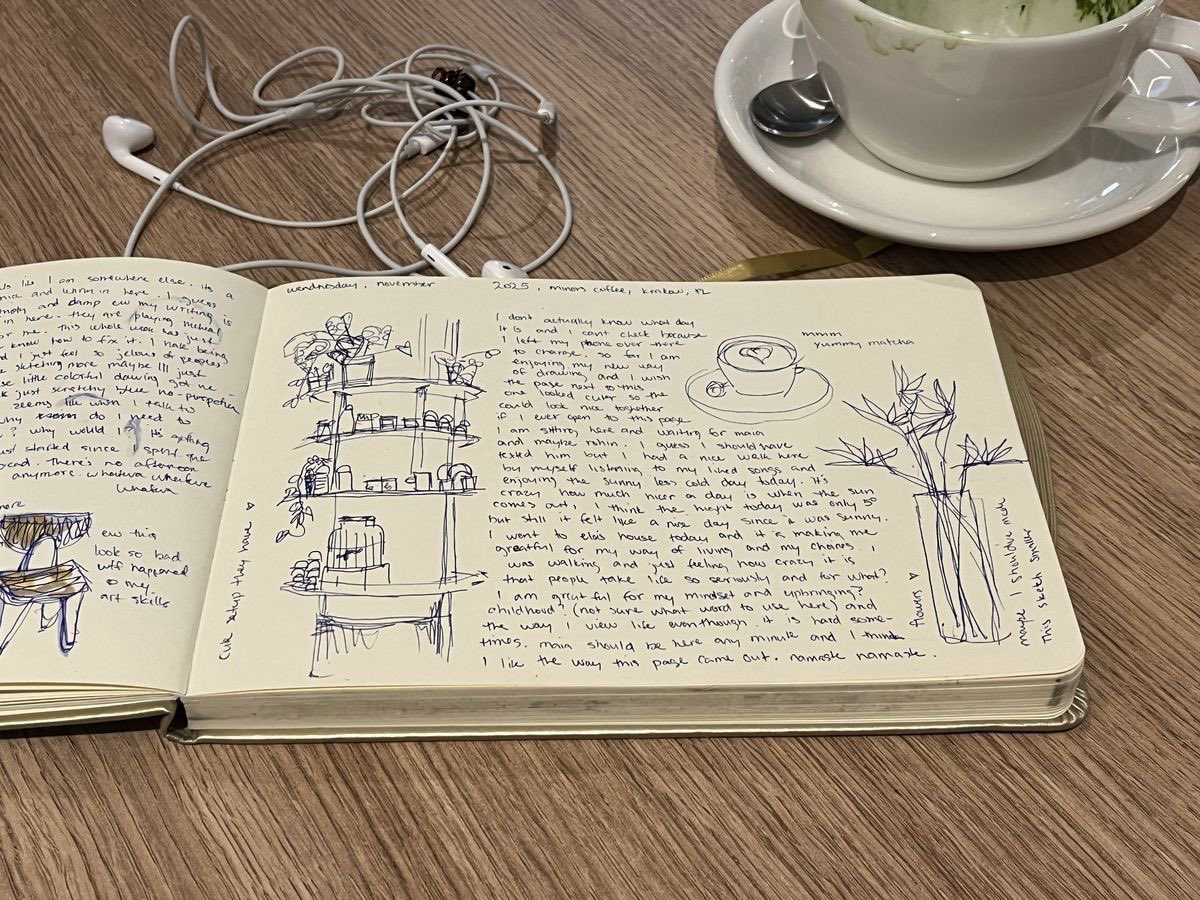 is I am somewhere else. its a
and warm in here. I guess
and damp ew my writing is
in here. they are playing
me. This whole week has just
know how to fix it. I hate being
I just feel so jelous of peoples
sketching more maybe Ill just
little colorful dawing got me
just scratchy blue no-purpose
seems like when I talk to
why do I need to
? why would I its getting
just started since I spent the
There's no afternoon
anymore. whatevra whatevre
whatvra
more
ew this
look so bad
wtf happened
to my
art skills
wendnesday, november 2025, minors coffee, krakow, PL
cute setup they have
I dont actually know what day
it is and I cant check because
I left my phone over there
to charge. so far I am
enjoying my new way
of drawing and I wish
the page next to this
one looked cuter so the
could look nice together
if I ever open to this page
I am sitting here and waiting for maia
and maybe robin. I guess I should have
texted him but I had a nice walk here
by myself listening to my liked songs and
enjoying the sunny less cold day today. its
crazy how much nicer a day is when the sun
comes out, I think the hight today was only 5°
but still it felt like a nise day since it was sunny.
I went to ela's house today and it is making me
greatful for my way of living and my chores. I
was walking and just feeling how crazy it is
that people take life so seriously and for what?
I am greatful for my mindset and upbringing?
childhood? (not sure what word to use here) and
the way I view life eventhough it is hard some-
times. maia should be here any minute and I think
I like the way this page came out. namaste namaste.
mmm
yummy matcha
flowers
maybe I shouldve made
this sketch smaller